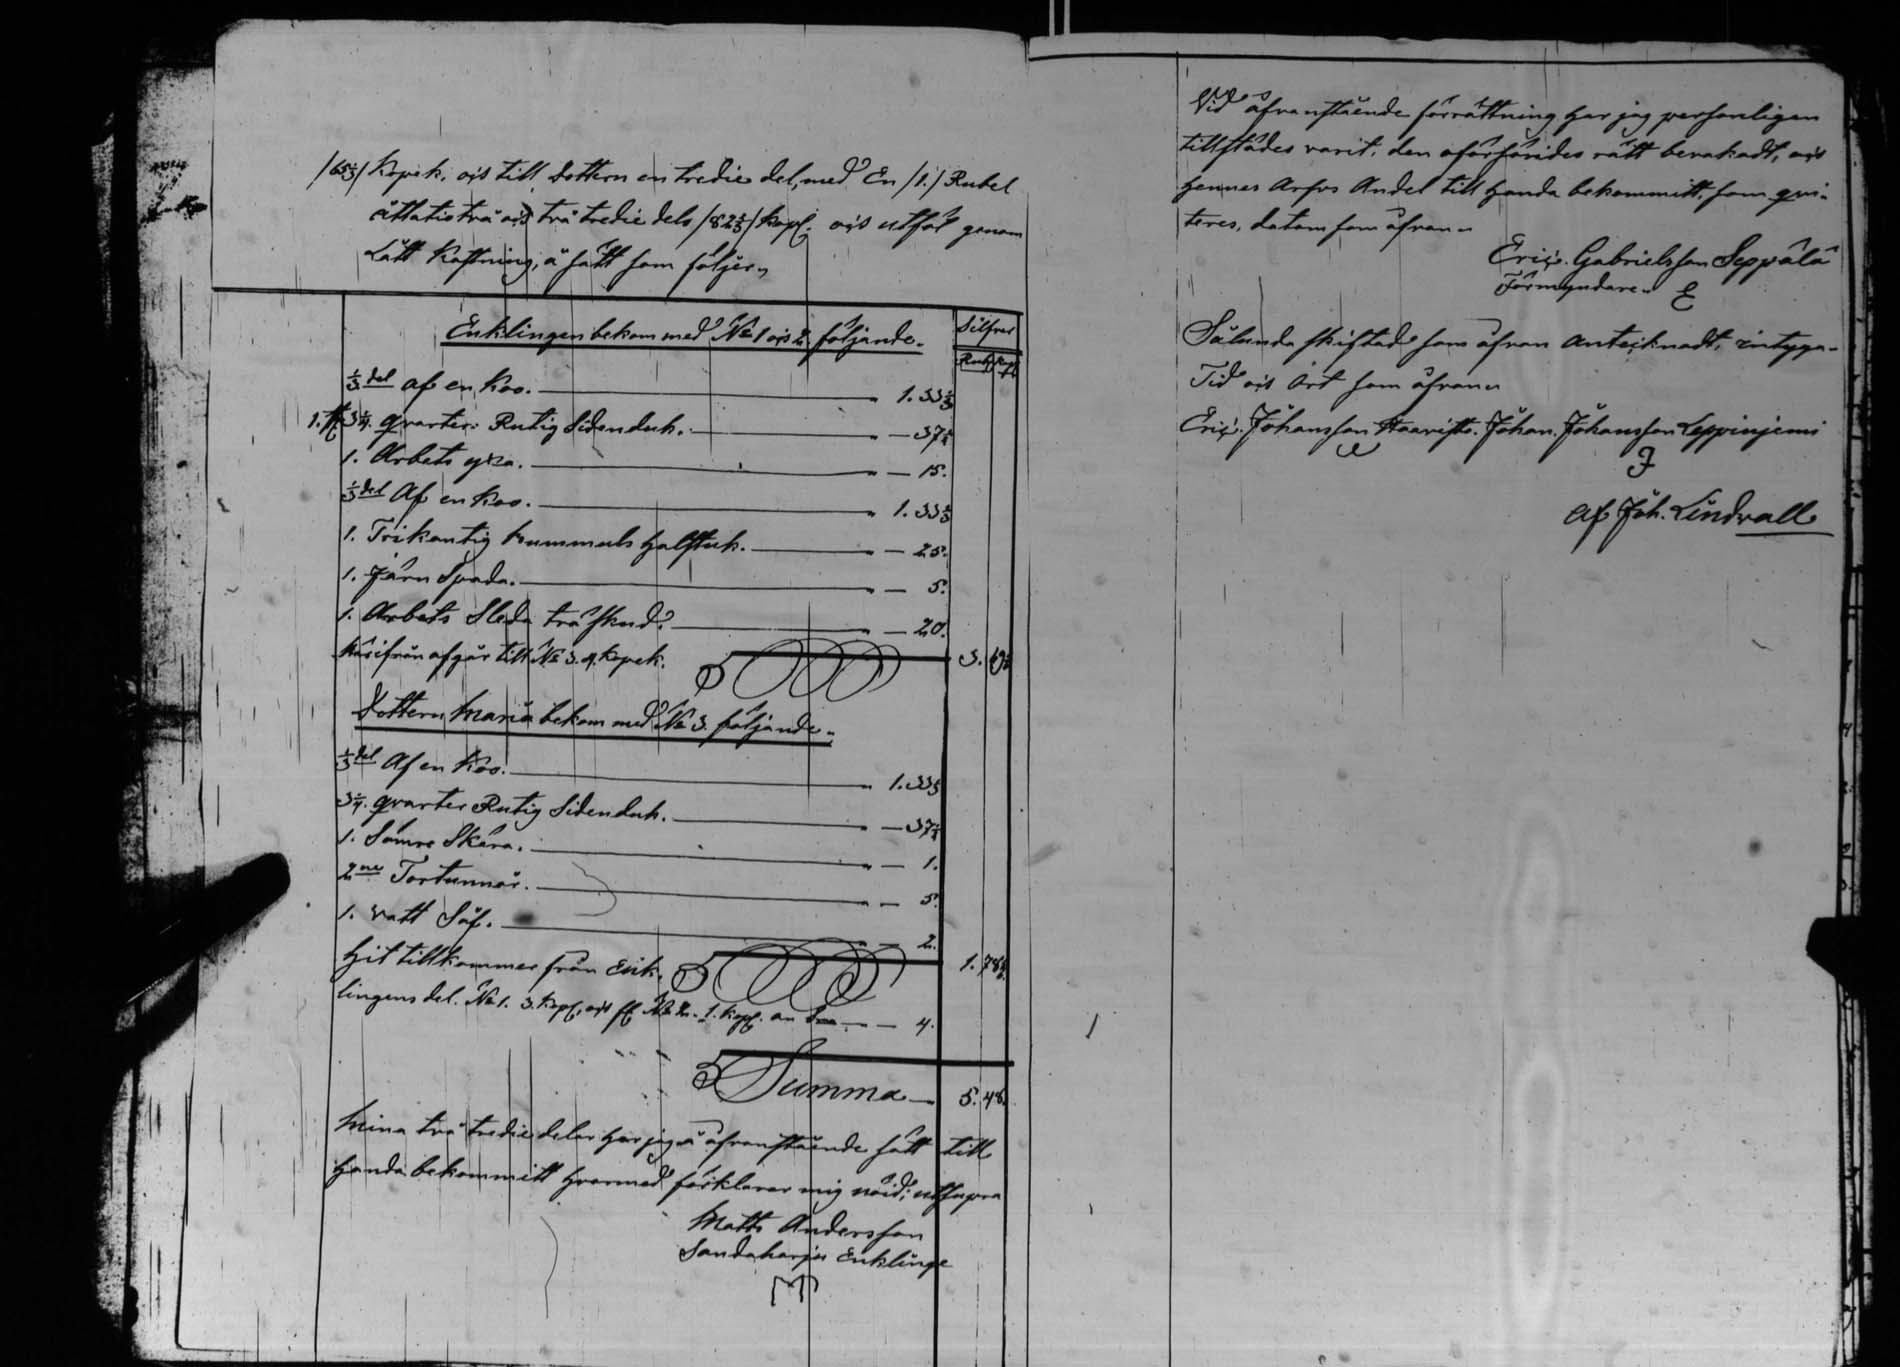 /65⅓/ Kopek. och till dottern en tredie del, med En /1./ Rubel
åttatio två och två tredie dels /82⅔/ Kopk. och utföl genom
Lått Kastning, å sätt som följer„
Enklingen bekom med No 1 och 2. följande.
Silfver
Rub. Kop.
⅓ del af en Koo. — „ 1. 33⅓
1. st 3¼. qvarter. Rutig Sidenduk. — „ — 37½
1. Arbets yxa. — „ — 15.
⅓ del Af en Koo. — „ 1. 33⅓
1. Trikantig Halsduk. — „ — 25.
1. Järn Spada. — „ — 5.
1. Arbets Sleda träskod. — „ — 20.
härifrån afgår till No 3. 4. Kopek. 3.
Dottern Maria bekom med No 3. följande„
⅓ del Af en Koo. — „ 1. 33⅓
3¼. qvarter Rutig Sidenduk. — „ — 37½
1. Sämre Skära. — „ — 1.
2ne Tortunnor. — „ — 5.
1. vatt Så. — „ — 2.
Hit tillkommer från Enk- 1. 78
lingens del. No 1. 3. Kopk. och No 2. 1. Kopk. — — 4.
Summa — 5. 48.
Mina två tredie delar har jag å åfvanstående sätt till
handa bekommitt hvarmed förklarar mig nöid; ut supra
Matts Andersson
Sandaharju Enklinge
M
Vid åfvanstående förrättning har jag personligen
tillstädes varit, den oförsörjdes rätt bevakadt, och
hennes Arfvs Andel till handa bekommitt, som qvi-
teres, datum som åfvan„
Eric. Gabrielsson Seppälä
Förmyndare„ E
Sålunda skiftade som åfvan antecknadt, intyga„
Tid och Ort som åfvan„
Eric. Johansson Haavisto. Johan. Johansson Leppinjemi
J
Af Joh. Lindvall